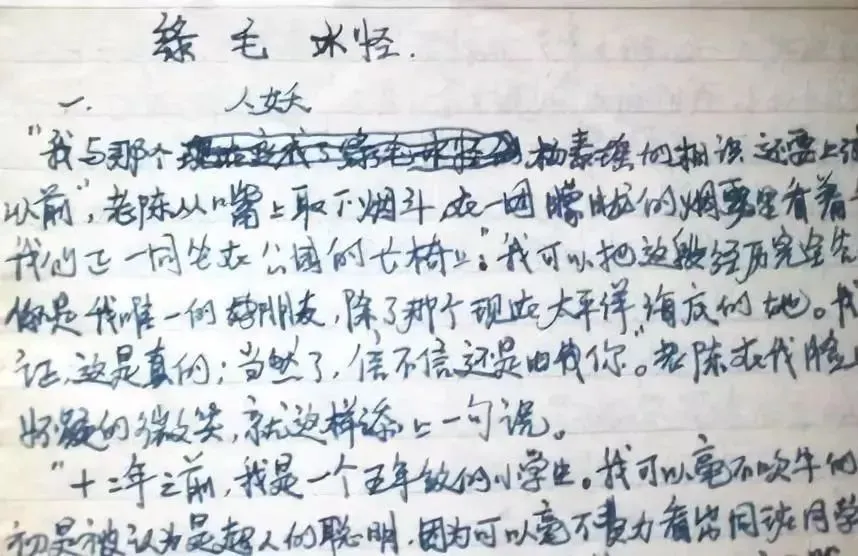 绿毛水怪.
一. 人妖
"我与那个 杨素瑶的相识还要上溯
以前",老陈从嘴上取下烟斗,在一团朦胧的烟雾里看着
我们正一同坐在公园的长椅上。"我可以把这段经历完全告
你是我唯一的 朋友,除了那个现在太平洋海底的她。我
证,这是真的;当然了,信不信还是由你"。老陈在我脸上
的微笑,就这样添上一句说。
"十二年之前,我是一个五年级的小学生。我可以毫不吹牛的
初是被认为是超人的聪明,因为可以毫不费力看出同班同学